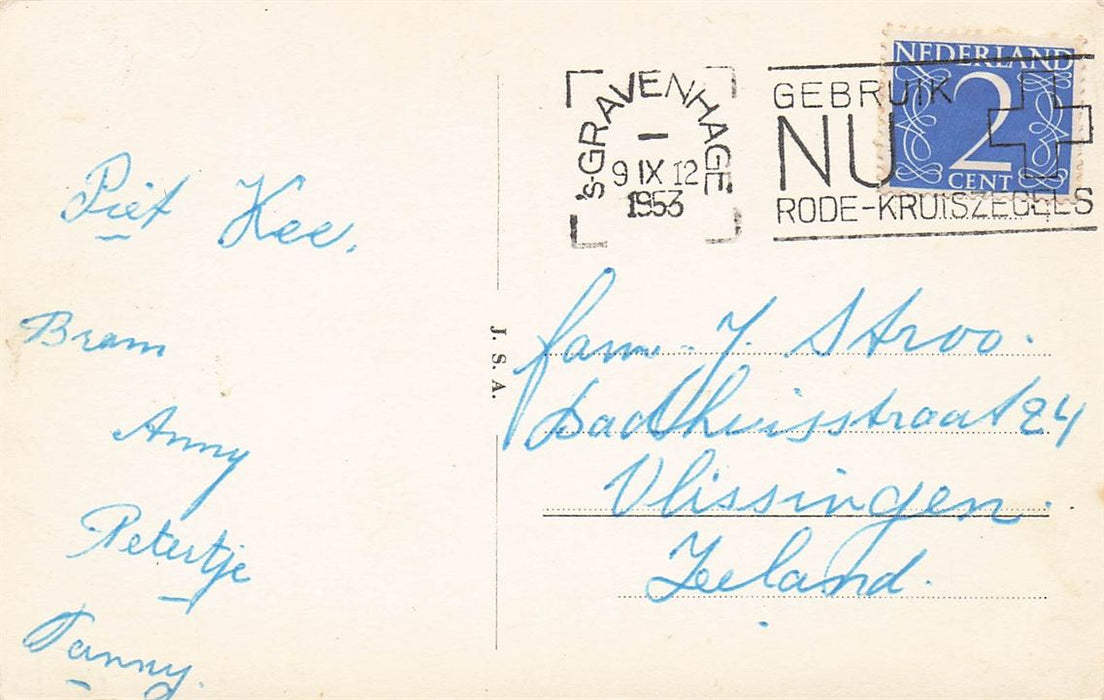 Piet Kee.
Bram
Anny
Petertje
Fanny.
J. S. A.
's-GRAVENHAGE
9 IX 12
1953
GEBRUIK
NU
RODE-KRUISZEGELS
NEDERLAND
2
CENT
fam. J. Stroo.
Badhuisstraat 24
Vlissingen.
Zeeland.